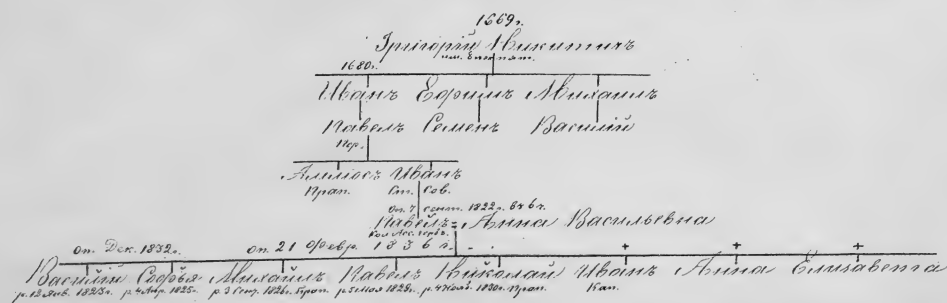 1669г.
Григорій Никитичъ
1680г.
Иванъ Ефримъ Михаилъ
Павелъ Семенъ Василій
Пор.
Иванъ
Прап. Ст. Сов.
оп. 7 сент. 1822г.
Павелъ = Анна Васильевна
оп. Дек. 1832г. оп. 21 Февр. 1836г.
Василій Софья Михаилъ Павелъ Николай Иванъ Анна Елисавета
р. 12 Янв. 1823г. р. 4 Апр. 1825г. р. 3 Сент. 1826г. Прап. р. 5 Мая 1828г. р. 4 Нояб. 1830г. Прап. Кап.